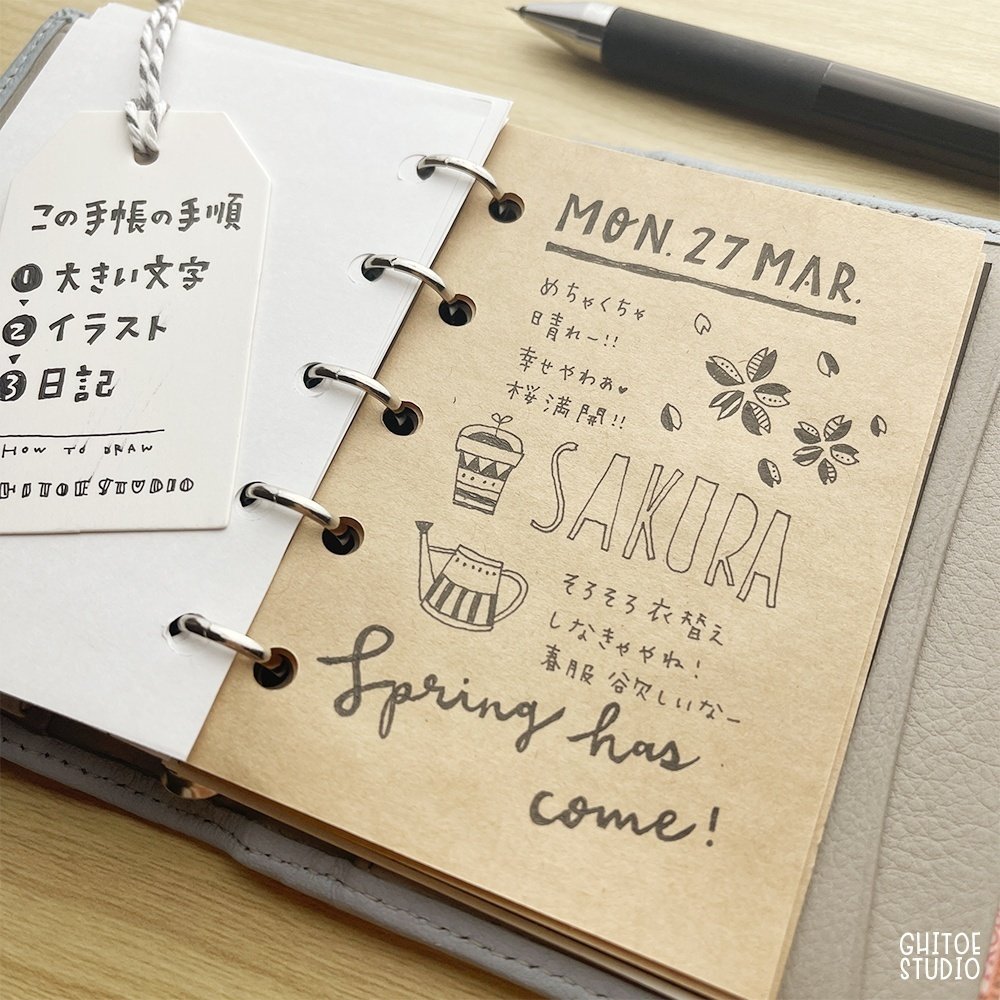 この手帳の手順
1 大きい文字
2 イラスト
3 日記
HOW TO DRAW
GHITOE STUDIO
MON. 27 MAR.
めちゃくちゃ
日晴れー!!
幸せやわぁ♥
桜満開!!
SAKURA
そろそろ衣替え
しなきゃやね!
春服欲しいなー
Spring has
come!
GHITOE
STUDIO